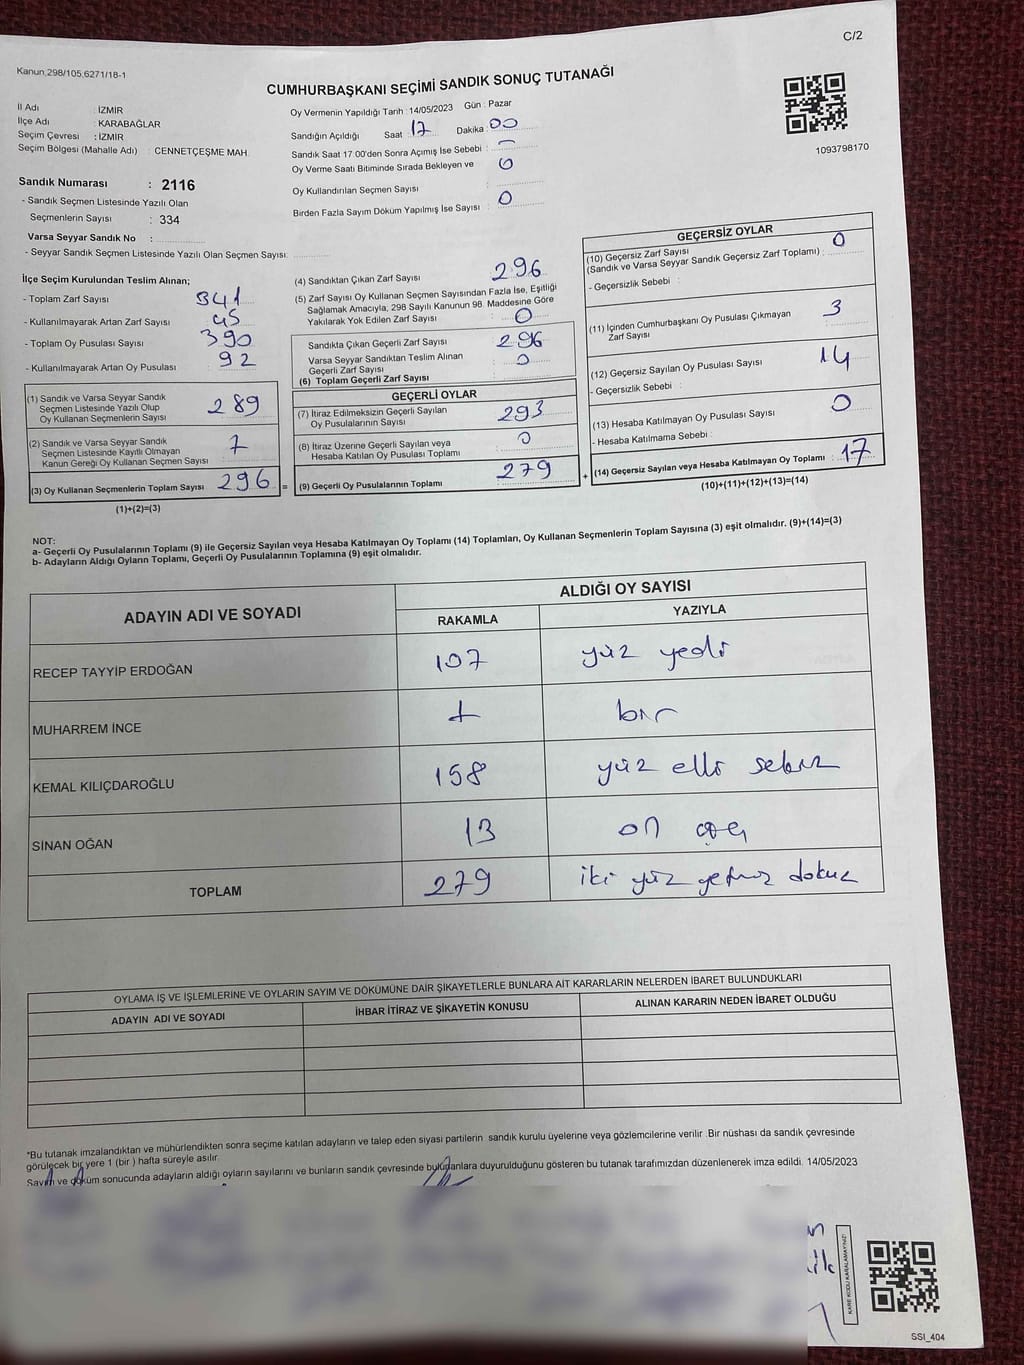 C/2
Kanun,298/105,6271/18-1
CUMHURBAŞKANI SEÇİMİ SANDIK SONUÇ TUTANAĞI
İl Adı : İZMİR
İlçe Adı : KARABAĞLAR
Seçim Çevresi : İZMİR
Seçim Bölgesi (Mahalle Adı) : CENNETÇEŞME MAH.
Sandık Numarası : 2116
- Sandık Seçmen Listesinde Yazılı Olan
Seçmenlerin Sayısı : 334
Varsa Seyyar Sandık No :
- Seyyar Sandık Seçmen Listesinde Yazılı Olan Seçmen Sayısı:
Oy Vermenin Yapıldığı Tarih : 14/05/2023 Gün : Pazar
Sandığın Açıldığı Saat : 17 Dakika : 00
Sandık Saat 17 00'den Sonra Açımış İse Sebebi : -
Oy Verme Saati Bitiminde Sırada Bekleyen ve : 0
Oy Kullandırılan Seçmen Sayısı
Birden Fazla Sayım Döküm Yapılmış İse Sayısı : 0
1093798170
İlçe Seçim Kurulundan Teslim Alınan;
- Toplam Zarf Sayısı : 341
- Kullanılmayarak Artan Zarf Sayısı : 45
- Toplam Oy Pusulası Sayısı : 390
- Kullanılmayarak Artan Oy Pusulası : 92
(1) Sandık ve Varsa Seyyar Sandık
Seçmen Listesinde Yazılı Olup
Oy Kullanan Seçmenlerin Sayısı : 289
(2) Sandık ve Varsa Seyyar Sandık
Seçmen Listesinde Kayıtlı Olmayan
Kanun Gereği Oy Kullanan Seçmen Sayısı : 7
(3) Oy Kullanan Seçmenlerin Toplam Sayısı : 296 =
(1)+(2)=(3)
(4) Sandıktan Çıkan Zarf Sayısı : 296
(5) Zarf Sayısı Oy Kullanan Seçmen Sayısından Fazla İse, Eşitliği
Sağlamak Amacıyla, 298 Sayılı Kanunun 98. Maddesine Göre
Yakılarak Yok Edilen Zarf Sayısı : 0
Sandıkta Çıkan Geçerli Zarf Sayısı : 296
Varsa Seyyar Sandıktan Teslim Alınan
Geçerli Zarf Sayısı : 0
(6) Toplam Geçerli Zarf Sayısı :
GEÇERLİ OYLAR
(7) İtiraz Edilmeksizin Geçerli Sayılan
Oy Pusulalarının Sayısı : 293
(8) İtiraz Üzerine Geçerli Sayılan veya
Hesaba Katılan Oy Pusulası Toplamı : 0
(9) Geçerli Oy Pusulalarının Toplamı : 279 +
GEÇERSİZ OYLAR
(10) Geçersiz Zarf Sayısı
(Sandık ve Varsa Seyyar Sandık Geçersiz Zarf Toplamı) : 0
- Geçersizlik Sebebi :
(11) İçinden Cumhurbaşkanı Oy Pusulası Çıkmayan
Zarf Sayısı : 3
(12) Geçersiz Sayılan Oy Pusulası Sayısı : 14
- Geçersizlik Sebebi :
(13) Hesaba Katılmayan Oy Pusulası Sayısı : 0
- Hesaba Katılmama Sebebi :
(14) Geçersiz Sayılan veya Hesaba Katılmayan Oy Toplamı : 17
(10)+(11)+(12)+(13)=(14)
NOT:
a- Geçerli Oy Pusulalarının Toplamı (9) ile Geçersiz Sayılan veya Hesaba Katılmayan Oy Toplamı (14) Toplamları, Oy Kullanan Seçmenlerin Toplam Sayısına (3) eşit olmalıdır. (9)+(14)=(3)
b- Adayların Aldığı Oyların Toplamı, Geçerli Oy Pusulalarının Toplamına (9) eşit olmalıdır.
ADAYIN ADI VE SOYADI
ALDIĞI OY SAYISI
RAKAMLA YAZIYLA
RECEP TAYYİP ERDOĞAN 107 yüz yedi
MUHARREM İNCE 1 bir
KEMAL KILIÇDAROĞLU 158 yüz elli sekiz
SİNAN OĞAN 13 on üç
TOPLAM 279 iki yüz yetmiş dokuz
OYLAMA İŞ VE İŞLEMLERİNE VE OYLARIN SAYIM VE DÖKÜMÜNE DAİR ŞİKAYETLERLE BUNLARA AİT KARARLARIN NELERDEN İBARET BULUNDUKLARI
ADAYIN ADI VE SOYADI İHBAR İTİRAZ VE ŞİKAYETİN KONUSU ALINAN KARARIN NEDEN İBARET OLDUĞU
*Bu tutanak imzalandıktan ve mühürlendikten sonra seçime katılan adayların ve talep eden siyasi partilerin sandık kurulu üyelerine veya gözlemcilerine verilir .Bir nüshası da sandık çevresinde
görülecek bir yere 1 (bir ) hafta süreyle asılır.
Sayım ve döküm sonucunda adayların aldığı oyların sayılarını ve bunların sandık çevresinde bulunanlara duyurulduğunu gösteren bu tutanak tarafımızdan düzenlenerek imza edildi. 14/05/2023
KARE KODU KARALAMAYINIZ!
SSI_404